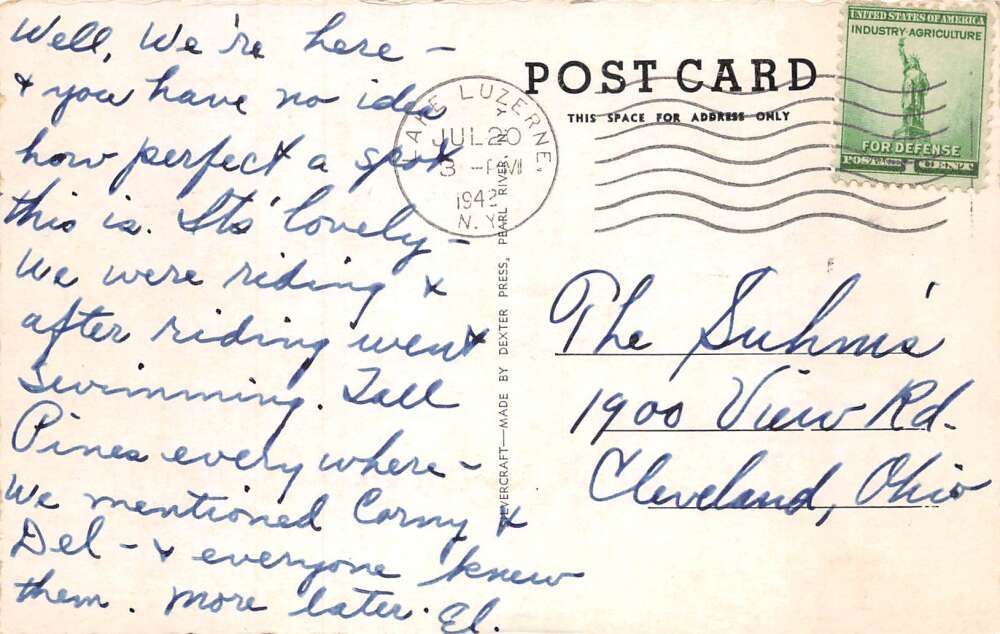 Well, We're here –
& you have no idea
how perfect a spot
this is. Its' lovely –
We were riding &
after riding went
swimming. Tall
Pines everywhere –
We mentioned Corny &
Del – & everyone knew
them. More later. El.
POST CARD
THIS SPACE FOR ADDRESS ONLY
LAKE LUZERNE,
JUL 20
3 - PM
1942
N.Y.
UNITED STATES OF AMERICA
INDUSTRY·AGRICULTURE
FOR DEFENSE
POSTAGE 1 CENT
The Suhm's
1900 View Rd.
Cleveland, Ohio
EVERCRAFT—MADE BY DEXTER PRESS, PEARL RIVER, N.Y.